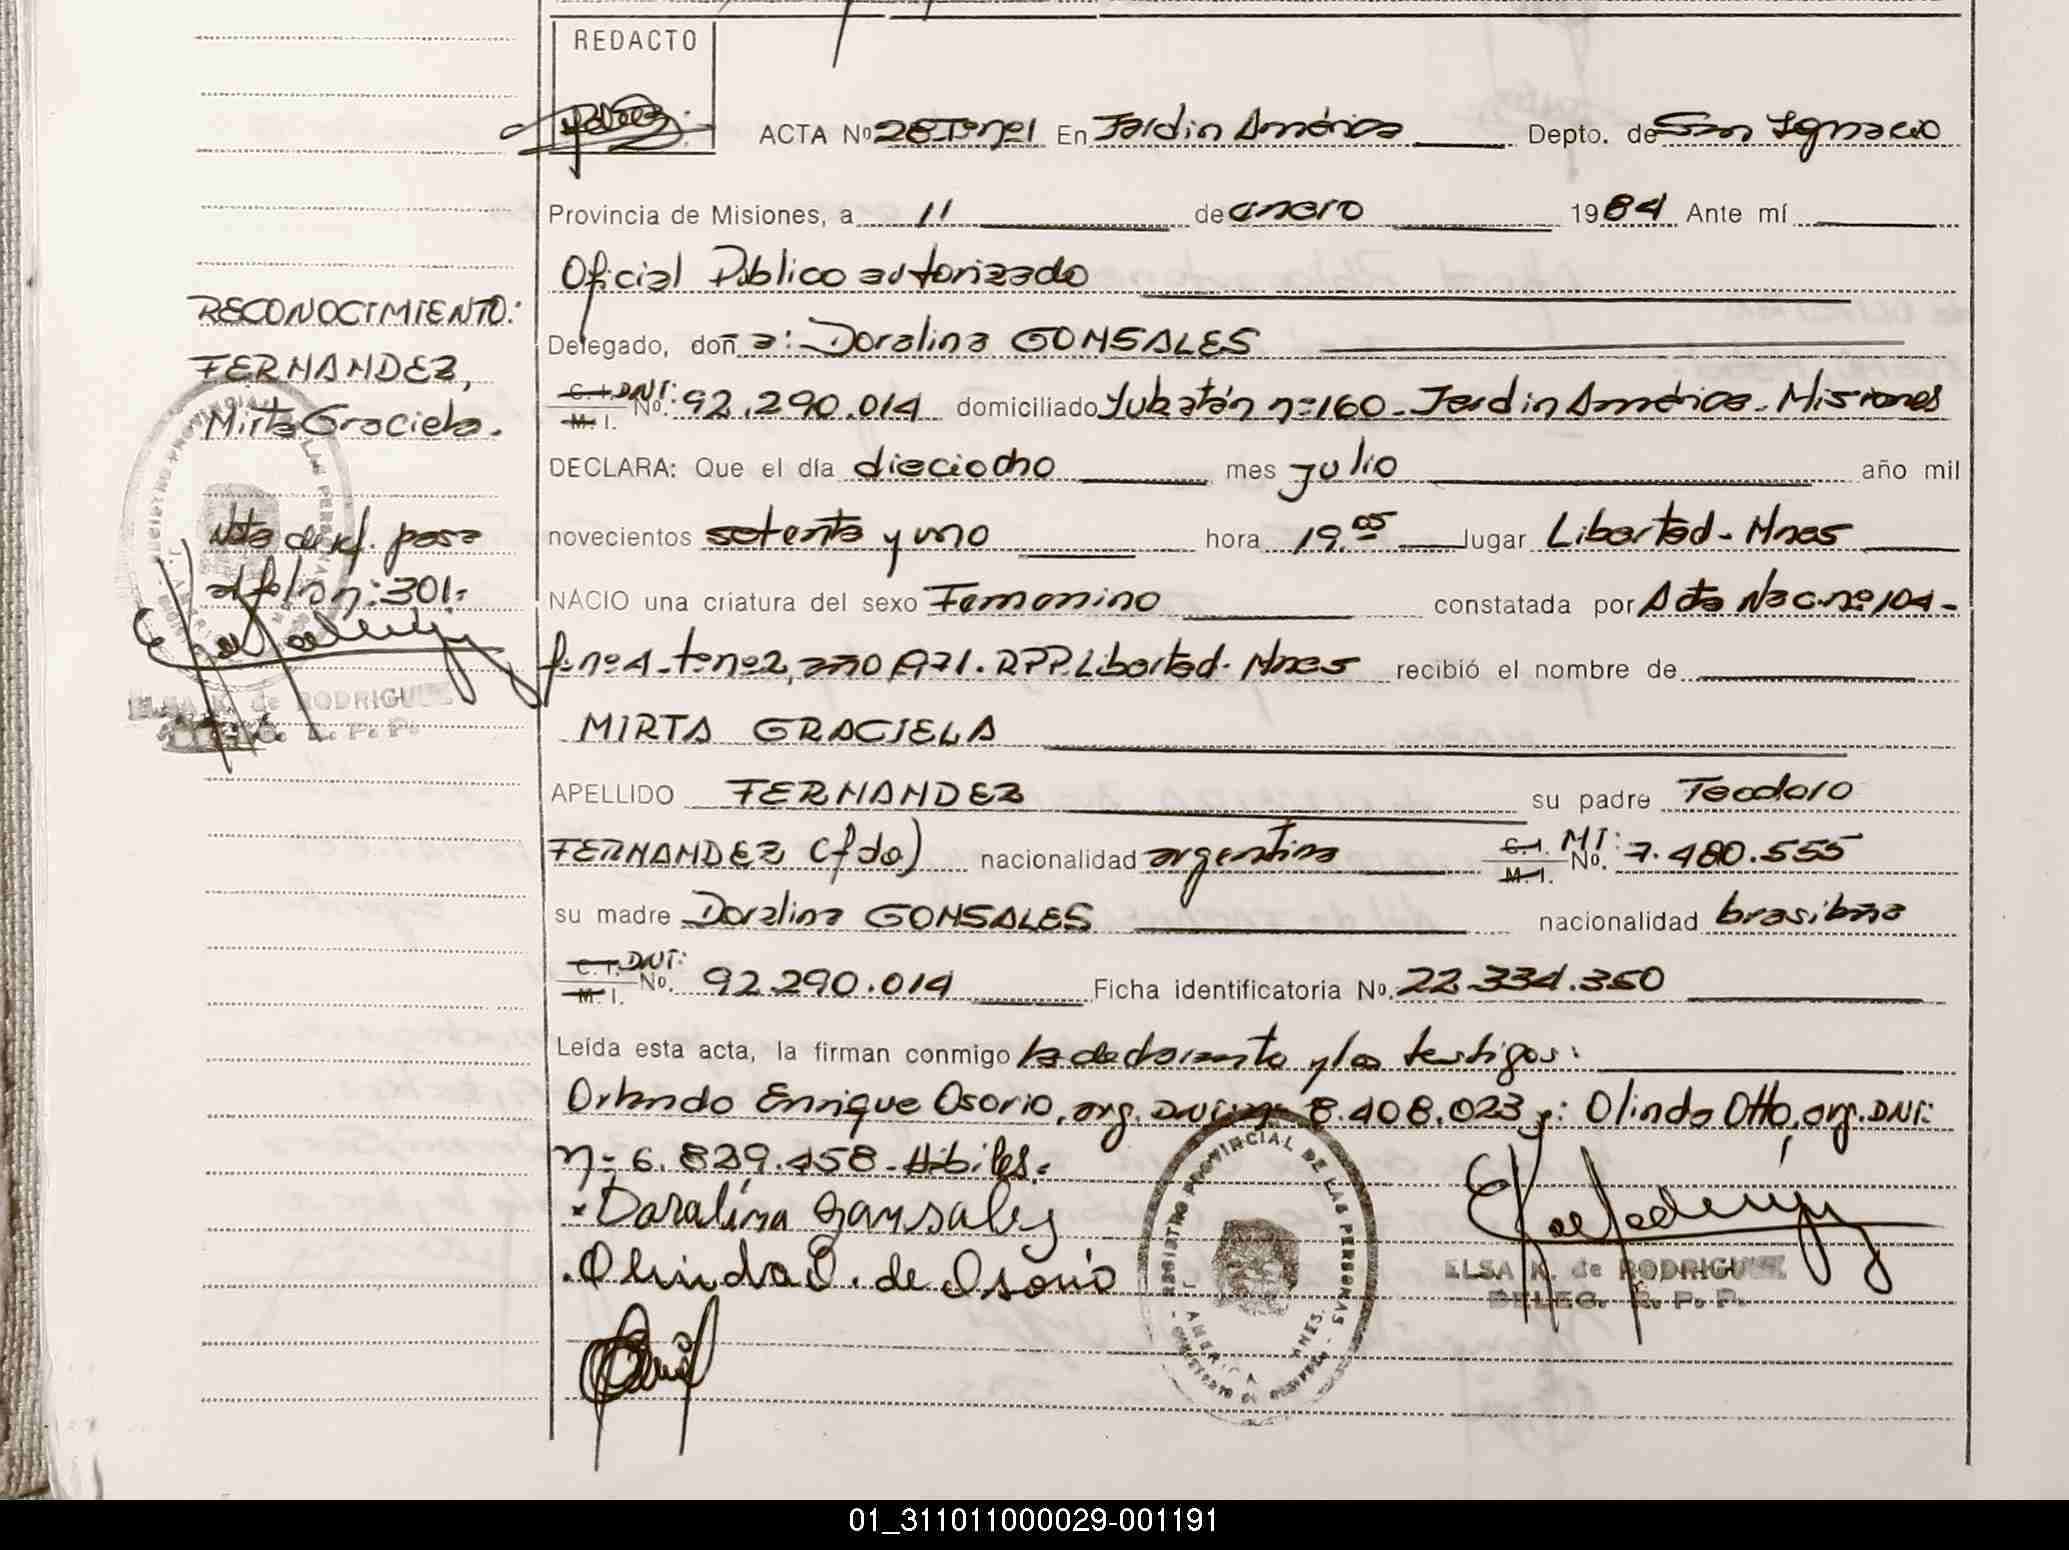 REDACTO
ACTA Nº 28 Tº nº 1 En Jardin América Depto. de San Ignacio
Provincia de Misiones, a 11 de enero 1984 Ante mí
Oficial Público autorizado
RECONOCIMIENTO:
FERNANDEZ,
Mirta Graciela.
Nota de ref. pasa
al folio nº: 301.
ELSA K. de RODRIGUEZ
DELEG. R. P. P.
Delegado, doña: Doralina GONSALES
C.I. DNI: M.I. No. 92.290.014 domiciliado Yukatán nº 160 - Jardin América - Misiones
DECLARA: Que el día dieciocho mes julio año mil
novecientos setenta y uno hora 19.05 lugar Libertad - Mnes
NACIO una criatura del sexo Femenino constatada por Acta Nac. nº 104 -
fº nº 4 - tº nº 2, año 1971. RPP. Libertad - Mnes recibió el nombre de
MIRTA GRACIELA
APELLIDO FERNANDEZ su padre Teodoro
FERNANDEZ (fdo) nacionalidad argentina C.I. MI: M.I. No. 7.480.555
su madre Doralina GONSALES nacionalidad brasileña
C.I. DNI: M.I. No. 92.290.014 Ficha identificatoria No. 22.334.350
Leída esta acta, la firman conmigo la declarante y los testigos:
Orlando Enrique Osorio, arg. DNI: nº 8.408.023 y: Olinda Otto, arg. DNI:
nº 6.839.458 - Hábiles.
Doralina Gonsales
Olinda O. de Osorio
REGISTRO PROVINCIAL DE LAS PERSONAS
AMERICA MNES.
ELSA K. de RODRIGUEZ
DELEG. R. P. P.
01_311011000029-001191